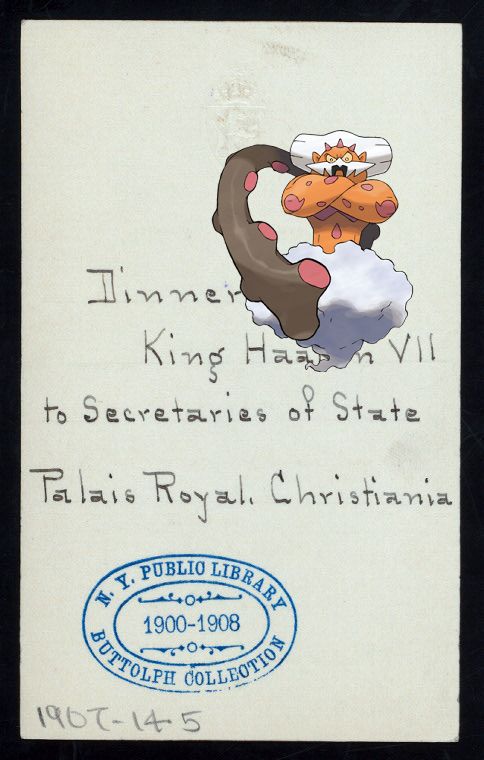 Dinner
King Haakon VII
to Secretaries of State
Palais Royal. Christiania
N. Y. PUBLIC LIBRARY
1900-1908
BUTTOLPH COLLECTION
1907-14-5